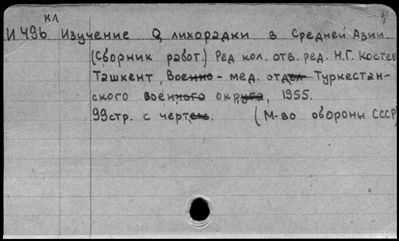 КЛ
И 496 Изучение Q лихорадки в Средней Азии.
(Сборник работ.) Ред кол. отв. ред. Н.Г. Костев
Ташкент, Военно-мед. отдел Туркестан-
ского военного округа, 1955.
99стр. с чертеж. (М-во обороны СССР)